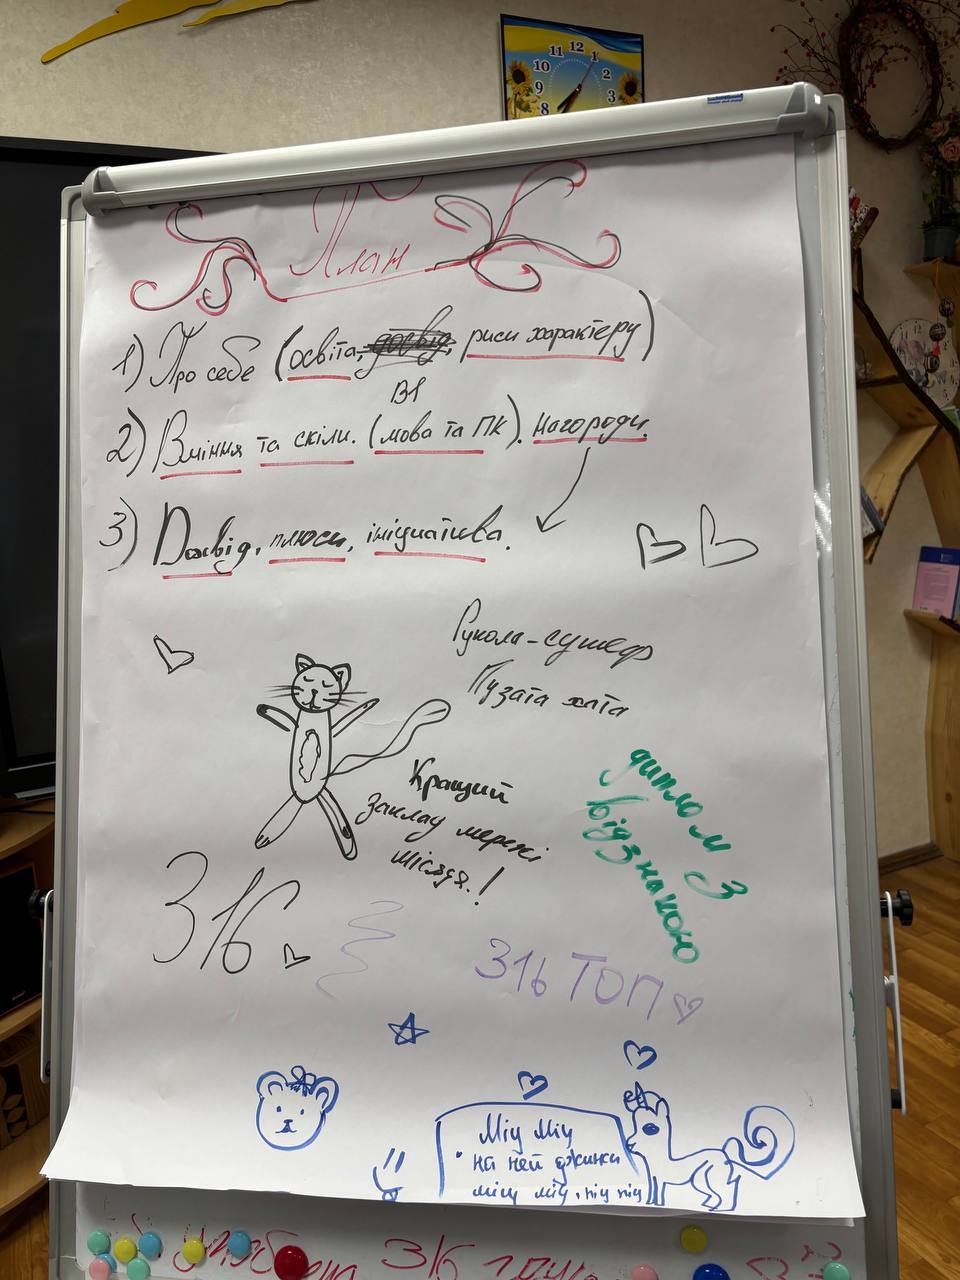 11 12 1
10 2
9 3
8
План
1) Про себе (освіта, досвід, риси характеру)
B1
2) Вміння та скіли. (мова та ПК). Нагороди.
3) Досвід, плюси, ініціатива.
Рукола-сушеф
Пузата хата
Кращий
заклад мережі
місяця.!
диплом з
відзнакою
316
316 ТОП
Міу Міу
на ней джинси
міу міу, піу піу
316